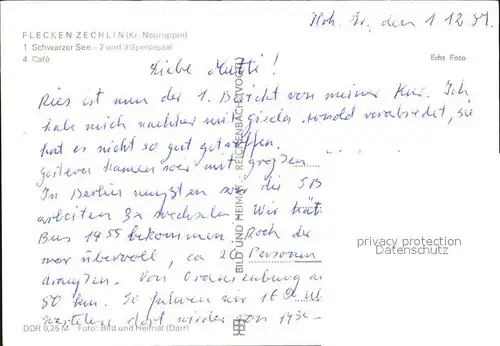 FLECKEN ZECHLIN (Kr. Neuruppin)
1 Schwarzer See – 2 und 3 Speisesaal
4 Café
den 1.12.87.
Echt Foto
Liebe Mutti!
Dies ist nun der 1. Bericht von meiner Kur. Ich
habe mich nachher mit Gisela verabredet, sie
hat es nicht so gut getroffen.
Gestern kamen wir mit großen
In Berlin mußten wir die SB
arbeiten zu wechseln. Wir hät
Bus 14 55 bekommen. Doch die
war übervoll, ca 20 Personen
draußen. Von Oranienburg
80 km. So fuhren wir 16
dort wieder von 17
BILD UND HEIMAT REICHENBACH (VOGTL)
privacy protection
Datenschutz
DDR 0,25 M Foto: Bild und Heimat (Darr)